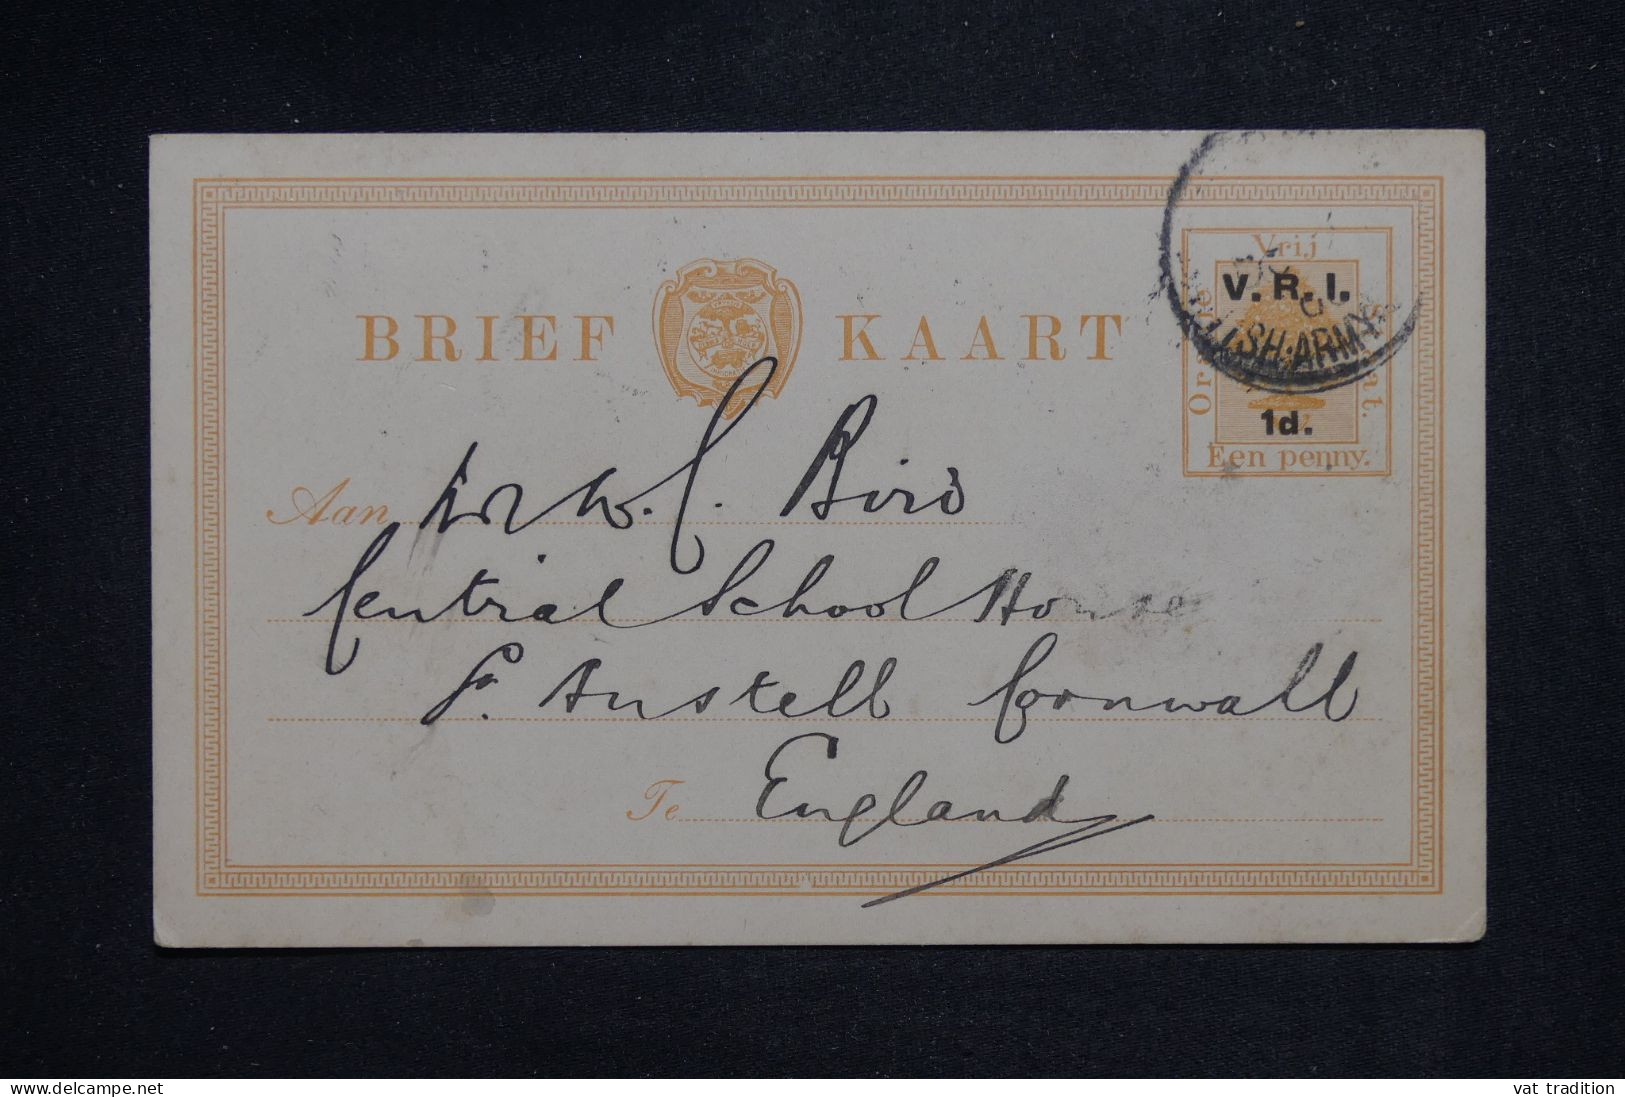 BRIEF KAART
Vrij
V. R. I.
1d.
Een penny.
ISH. ARMY
Aan Mr W. C. Bird
Central School House
St. Austell Cornwall
Te England
Delcampe.net
vat tradition